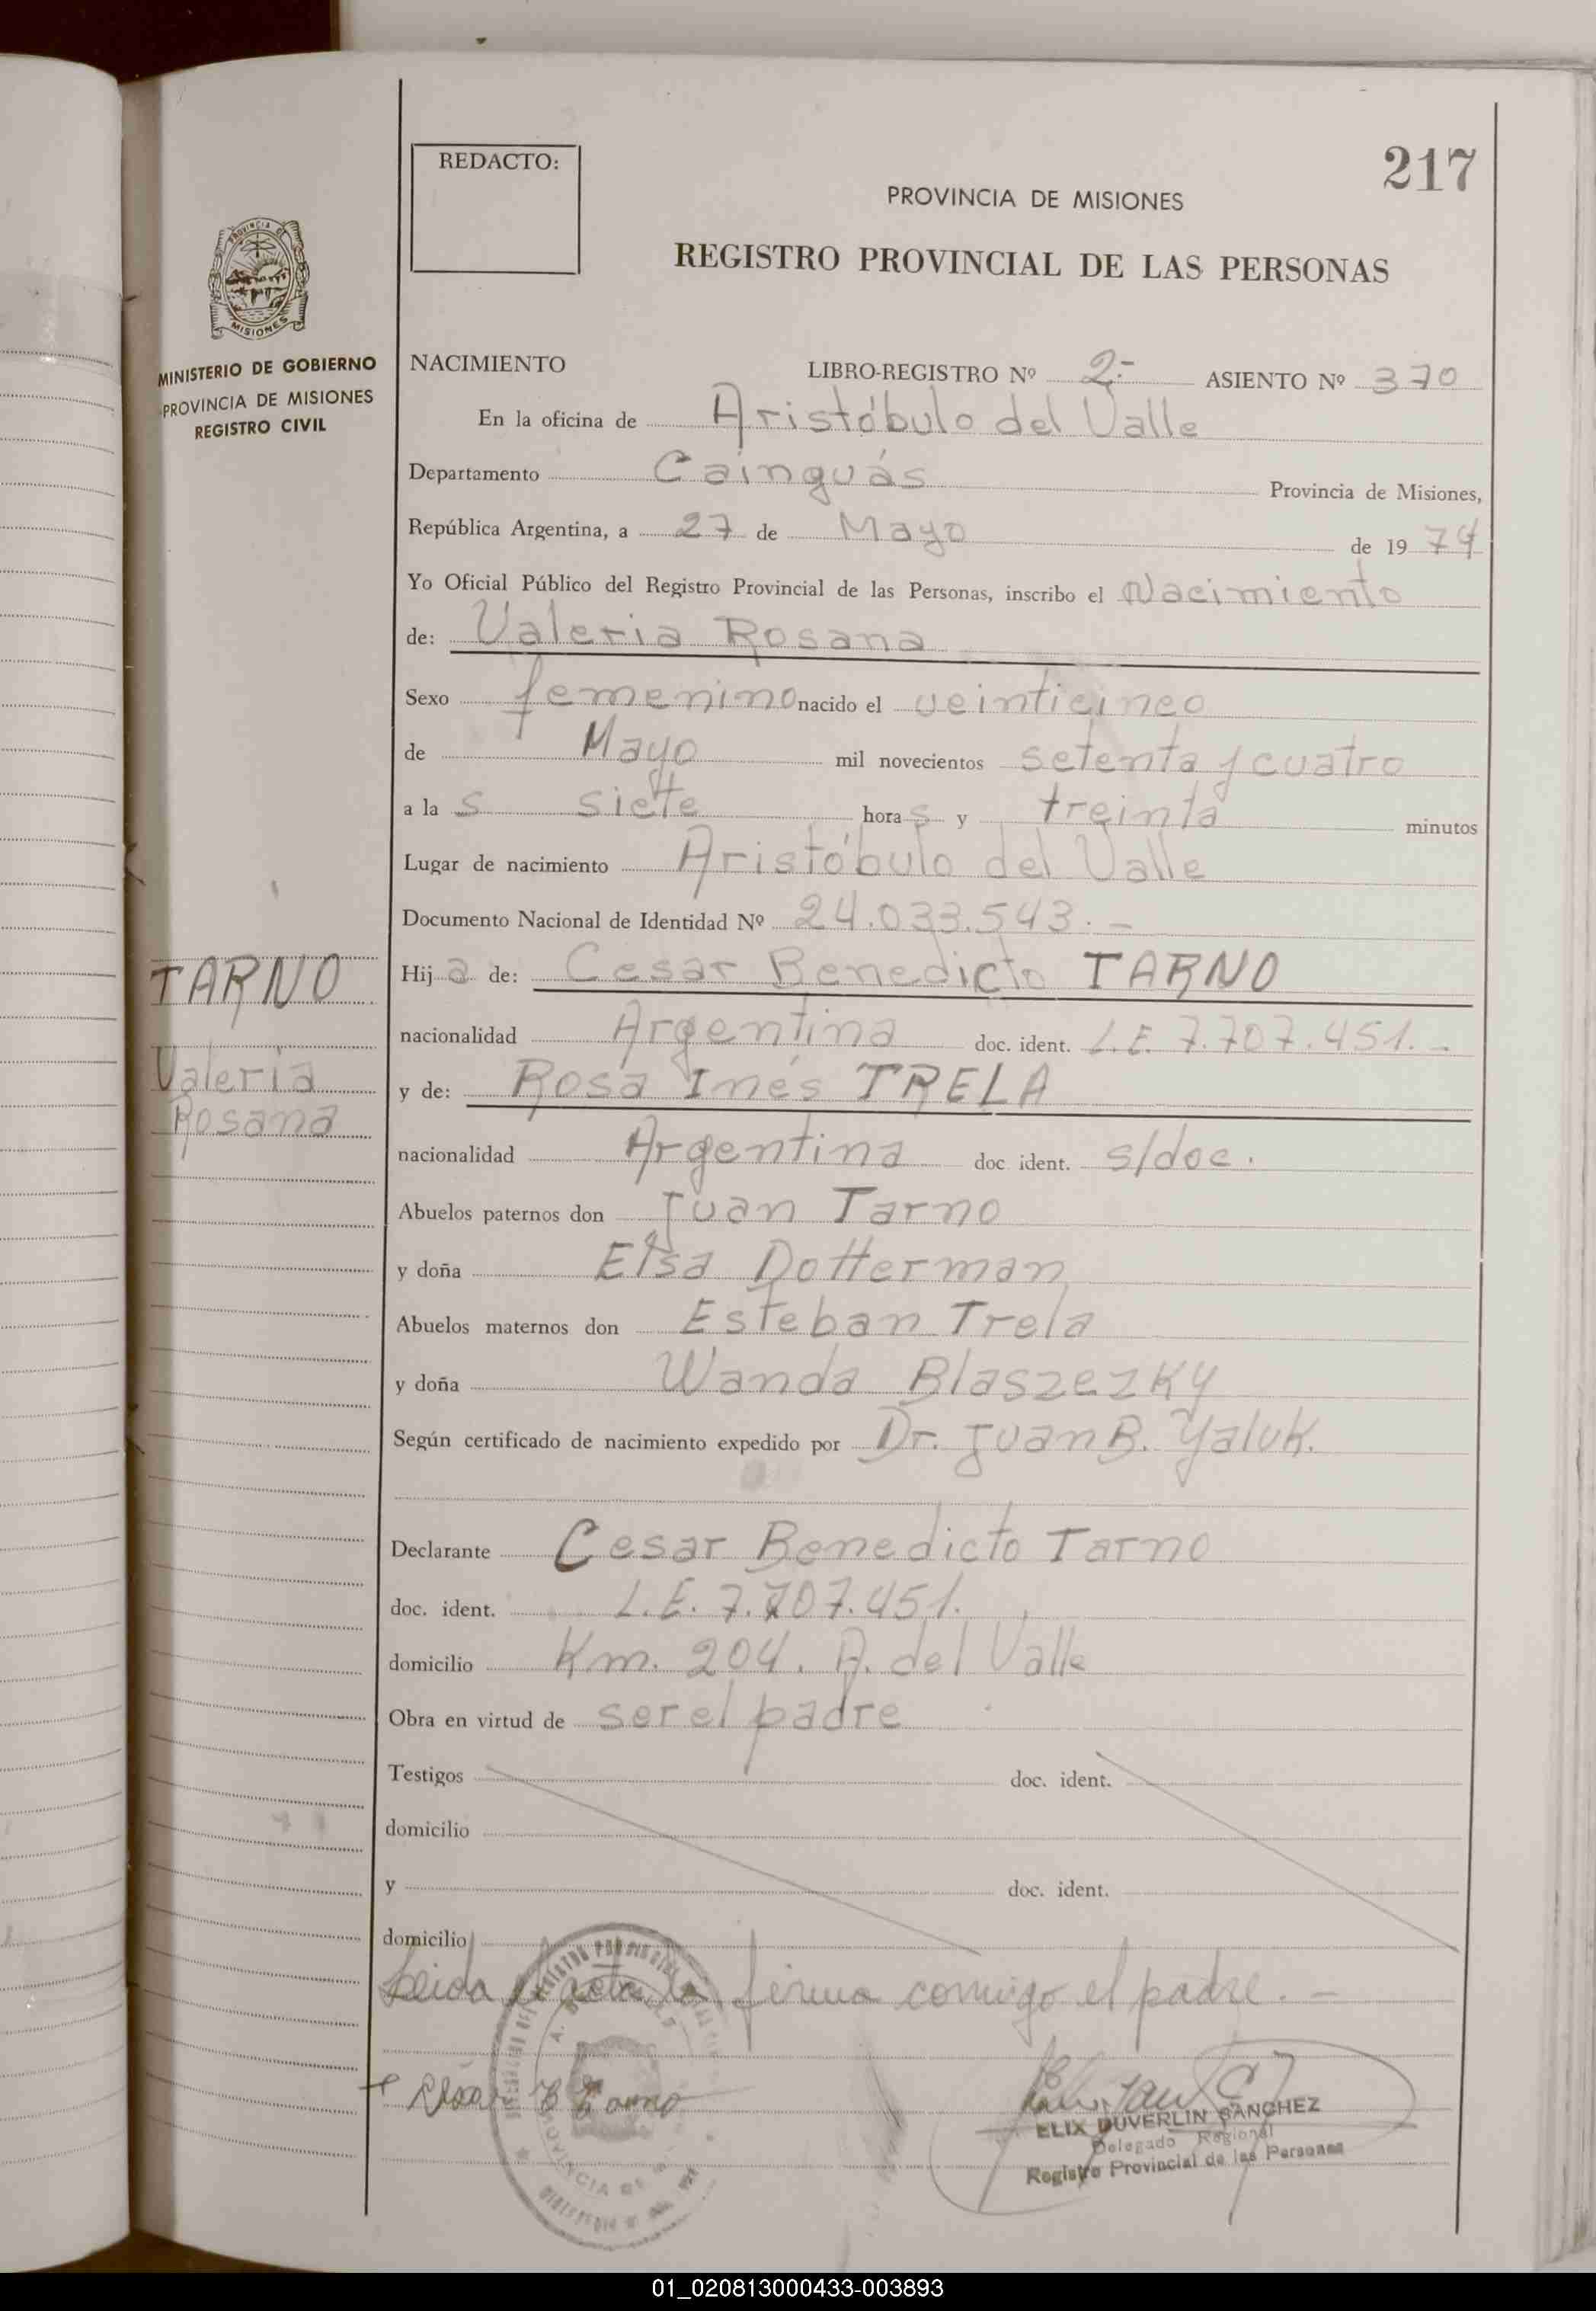 217
REDACTO:
PROVINCIA DE MISIONES
REGISTRO PROVINCIAL DE LAS PERSONAS
PROVINCIA DE
MISIONES
MINISTERIO DE GOBIERNO
PROVINCIA DE MISIONES
REGISTRO CIVIL
NACIMIENTO LIBRO-REGISTRO Nº 2.- ASIENTO Nº 370
En la oficina de Aristóbulo del Valle
Departamento Cainguás Provincia de Misiones,
República Argentina, a 27 de Mayo de 1974
Yo Oficial Público del Registro Provincial de las Personas, inscribo el Nacimiento
de: Valeria Rosana
Sexo femenino nacido el veinticinco
de Mayo mil novecientos setenta y cuatro
a las siete horas y treinta minutos
Lugar de nacimiento Aristóbulo del Valle
Documento Nacional de Identidad Nº 24.033.543.-
TARNO
Valeria
Rosana
Hija de: Cesar Benedicto TARNO
nacionalidad Argentina doc. ident. L.E. 7.707.451.-
y de: Rosa Inés TRELA
nacionalidad Argentina doc. ident. s/doc.
Abuelos paternos don Juan Tarno
y doña Elsa Dotterman
Abuelos maternos don Esteban Trela
y doña Wanda Blaszezky
Según certificado de nacimiento expedido por Dr. Juan B. Yaluk.
Declarante Cesar Benedicto Tarno
doc. ident. L.E. 7.707.451.
domicilio Km. 204. A. del Valle
Obra en virtud de ser el padre
Testigos doc. ident.
domicilio
y doc. ident.
domicilio
Leida el acta la firma conmigo el padre.-
Cesar B Tarno
ELIX DUVERLIN SANCHEZ
Delegado Regional
Registro Provincial de las Personas
01_020813000433-003893